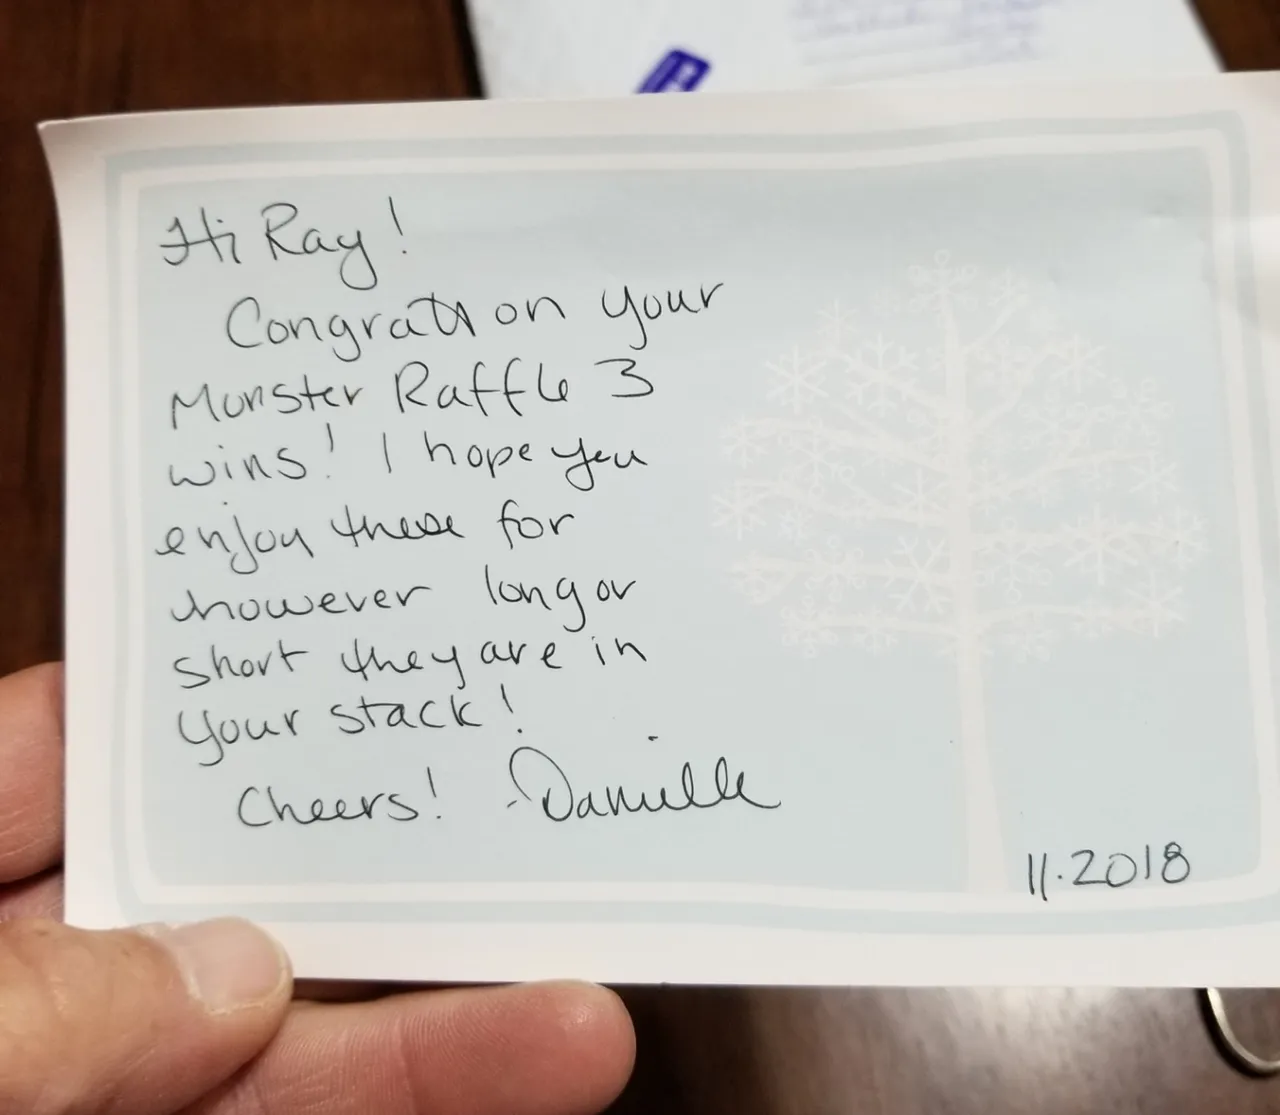 Hi Ray!
Congrats on your
Monster Raffle 3
wins! I hope you
enjoy these for
however long or
short they are in
your stack!
Cheers! -Danielle
11.2018